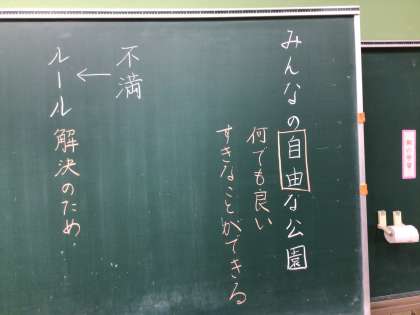 みんなの自由な公園
何でも良い
すきなことができる
不満
←
ルール解決のため‥